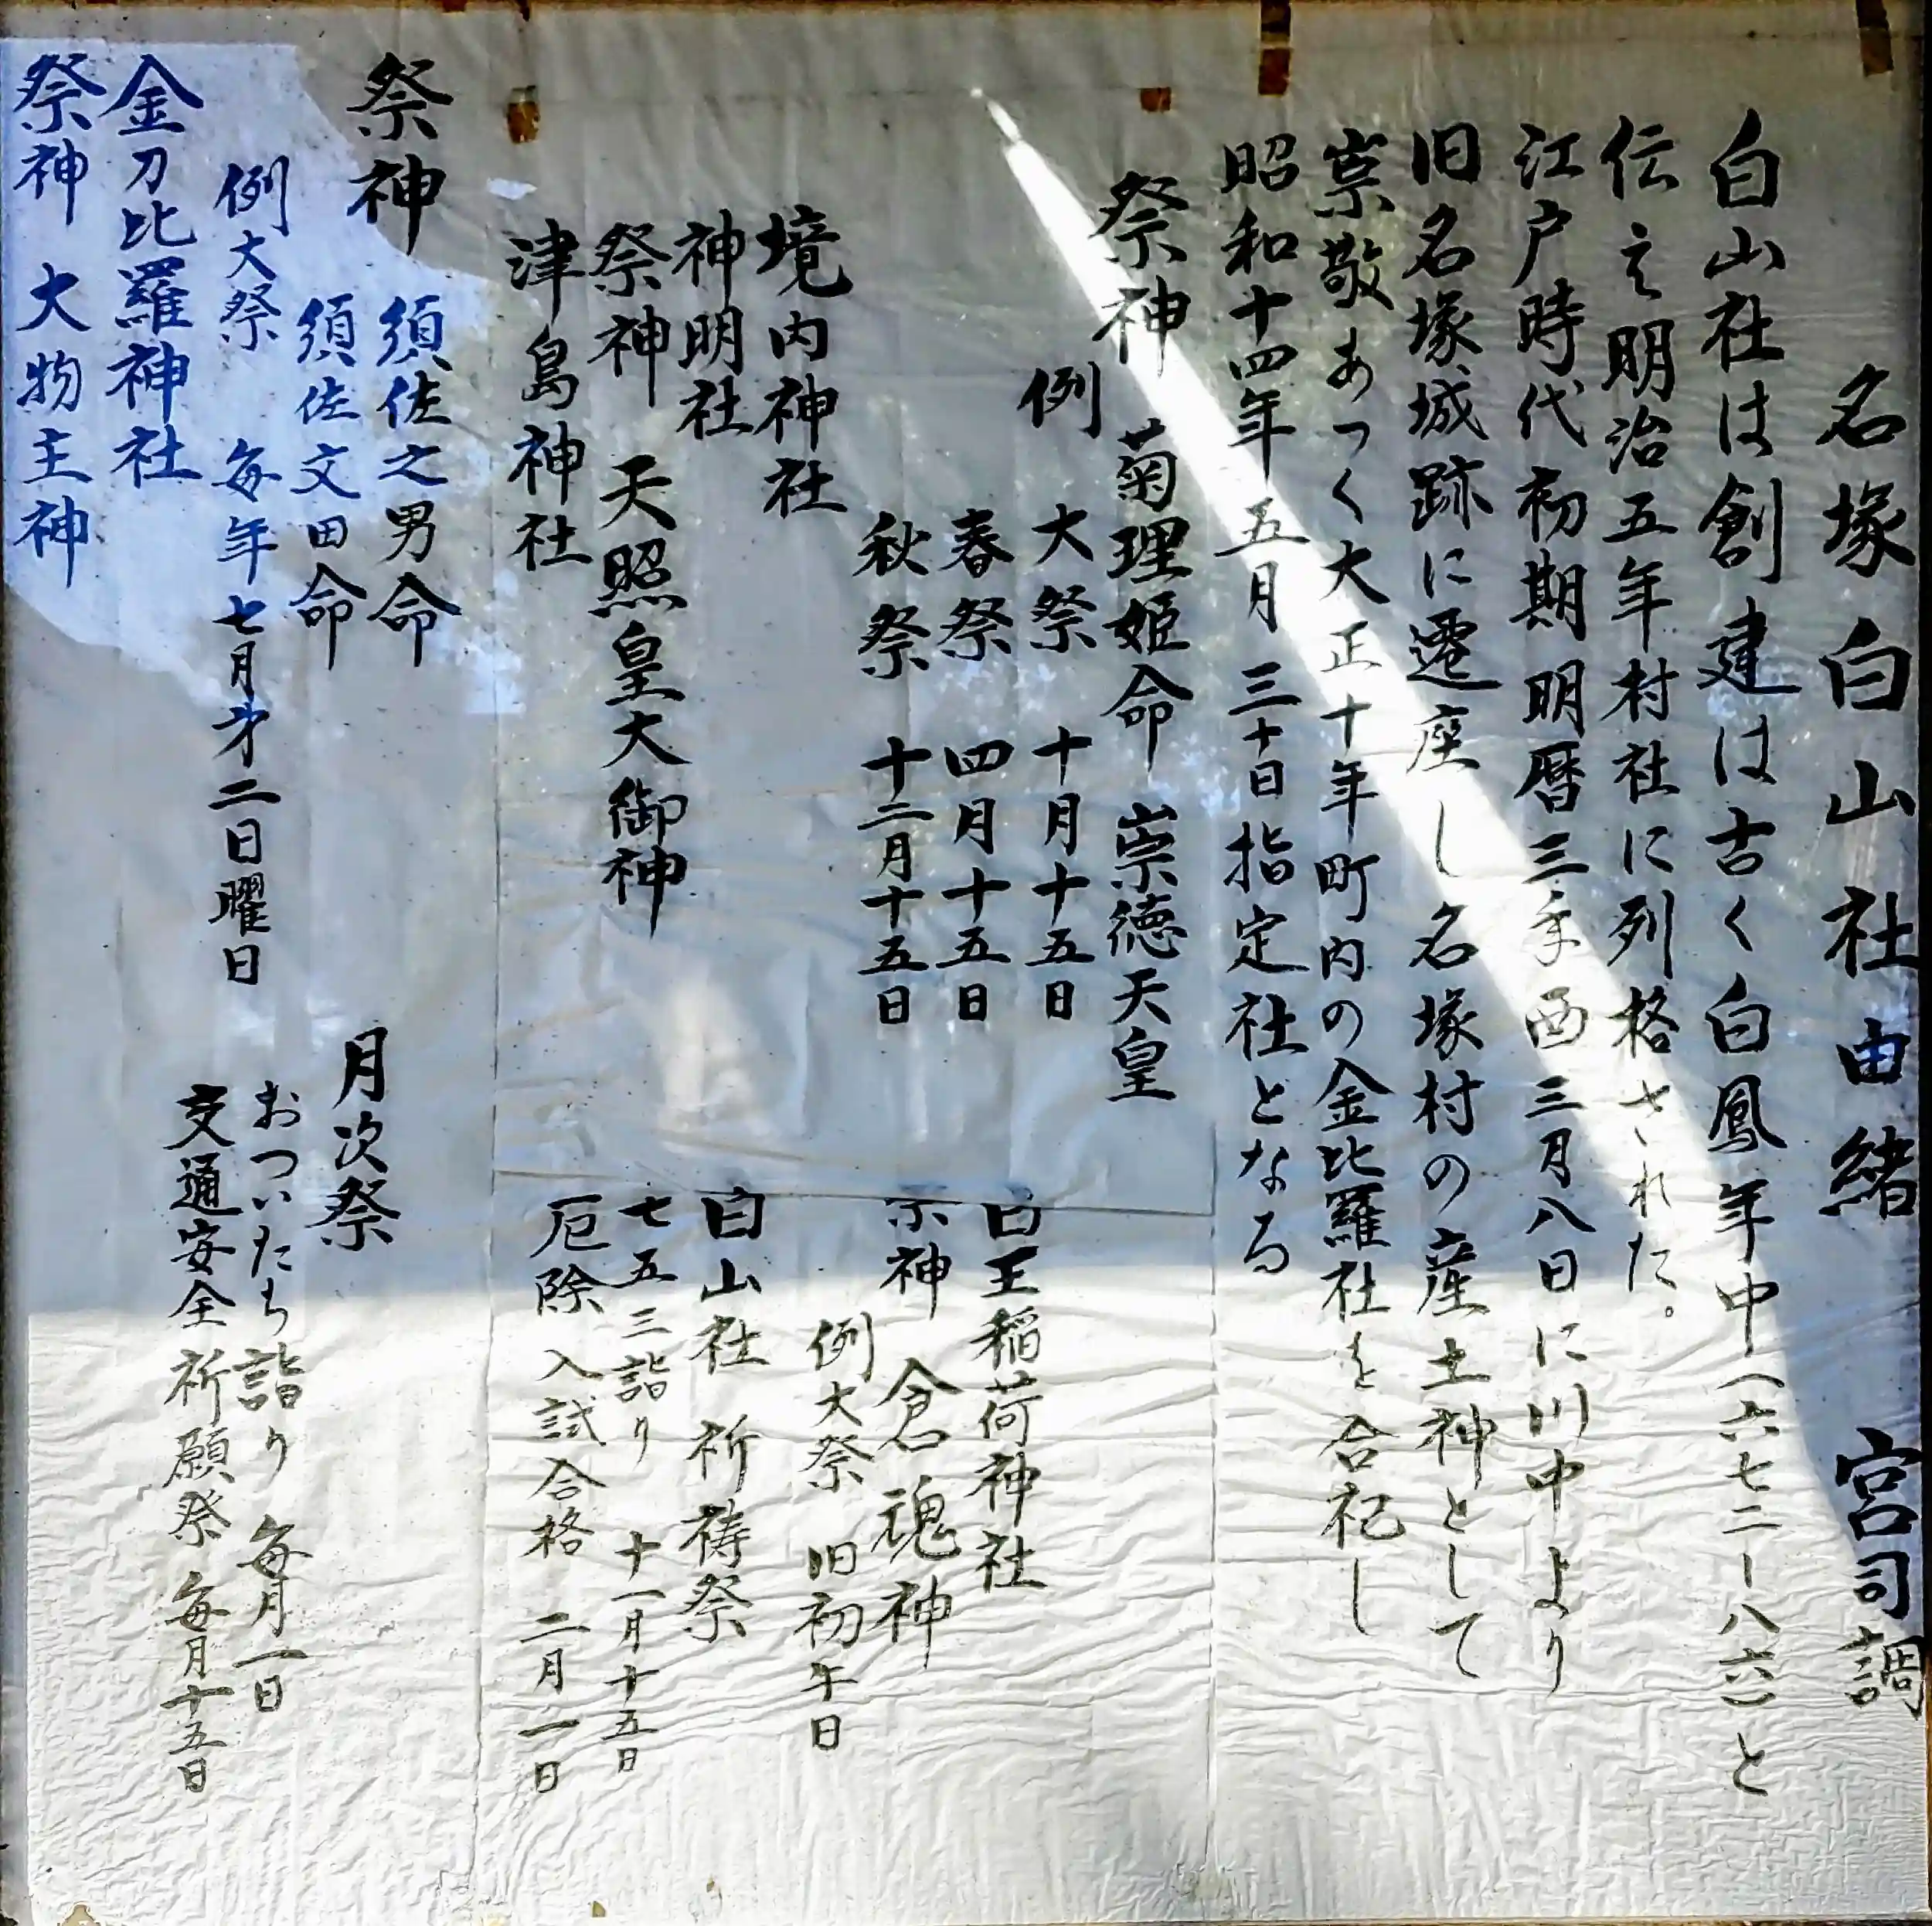 名塚白山社由緒 宮司調
白山社は創建は古く白鳳年中(六七二ー八六)と
伝え明治五年村社に列格された。
江戸時代初期明暦三年酉三月八日に川中より
旧名塚城跡に遷座し名塚村の産土神として
崇敬あつく大正十年町内の金比羅社を合祀し
昭和十四年五月三十日指定社となる
祭神 菊理姫命 崇徳天皇
例大祭 十月十五日
春祭 四月十五日
秋祭 十二月十五日
境内神社
神明社
祭神 天照皇大御神
津島神社
白玉稲荷神社
祭神 倉魂神
例大祭 旧初午日
白山社 祈祷祭
七五三詣り 十一月十五日
厄除 入試合格 二月一日
祭神 須佐之男命
須佐文田命
例大祭 毎年七月才二日曜日
金刀比羅神社
祭神 大物主神
月次祭
おついたち詣り 毎月一日
交通安全祈願祭 毎月十五日